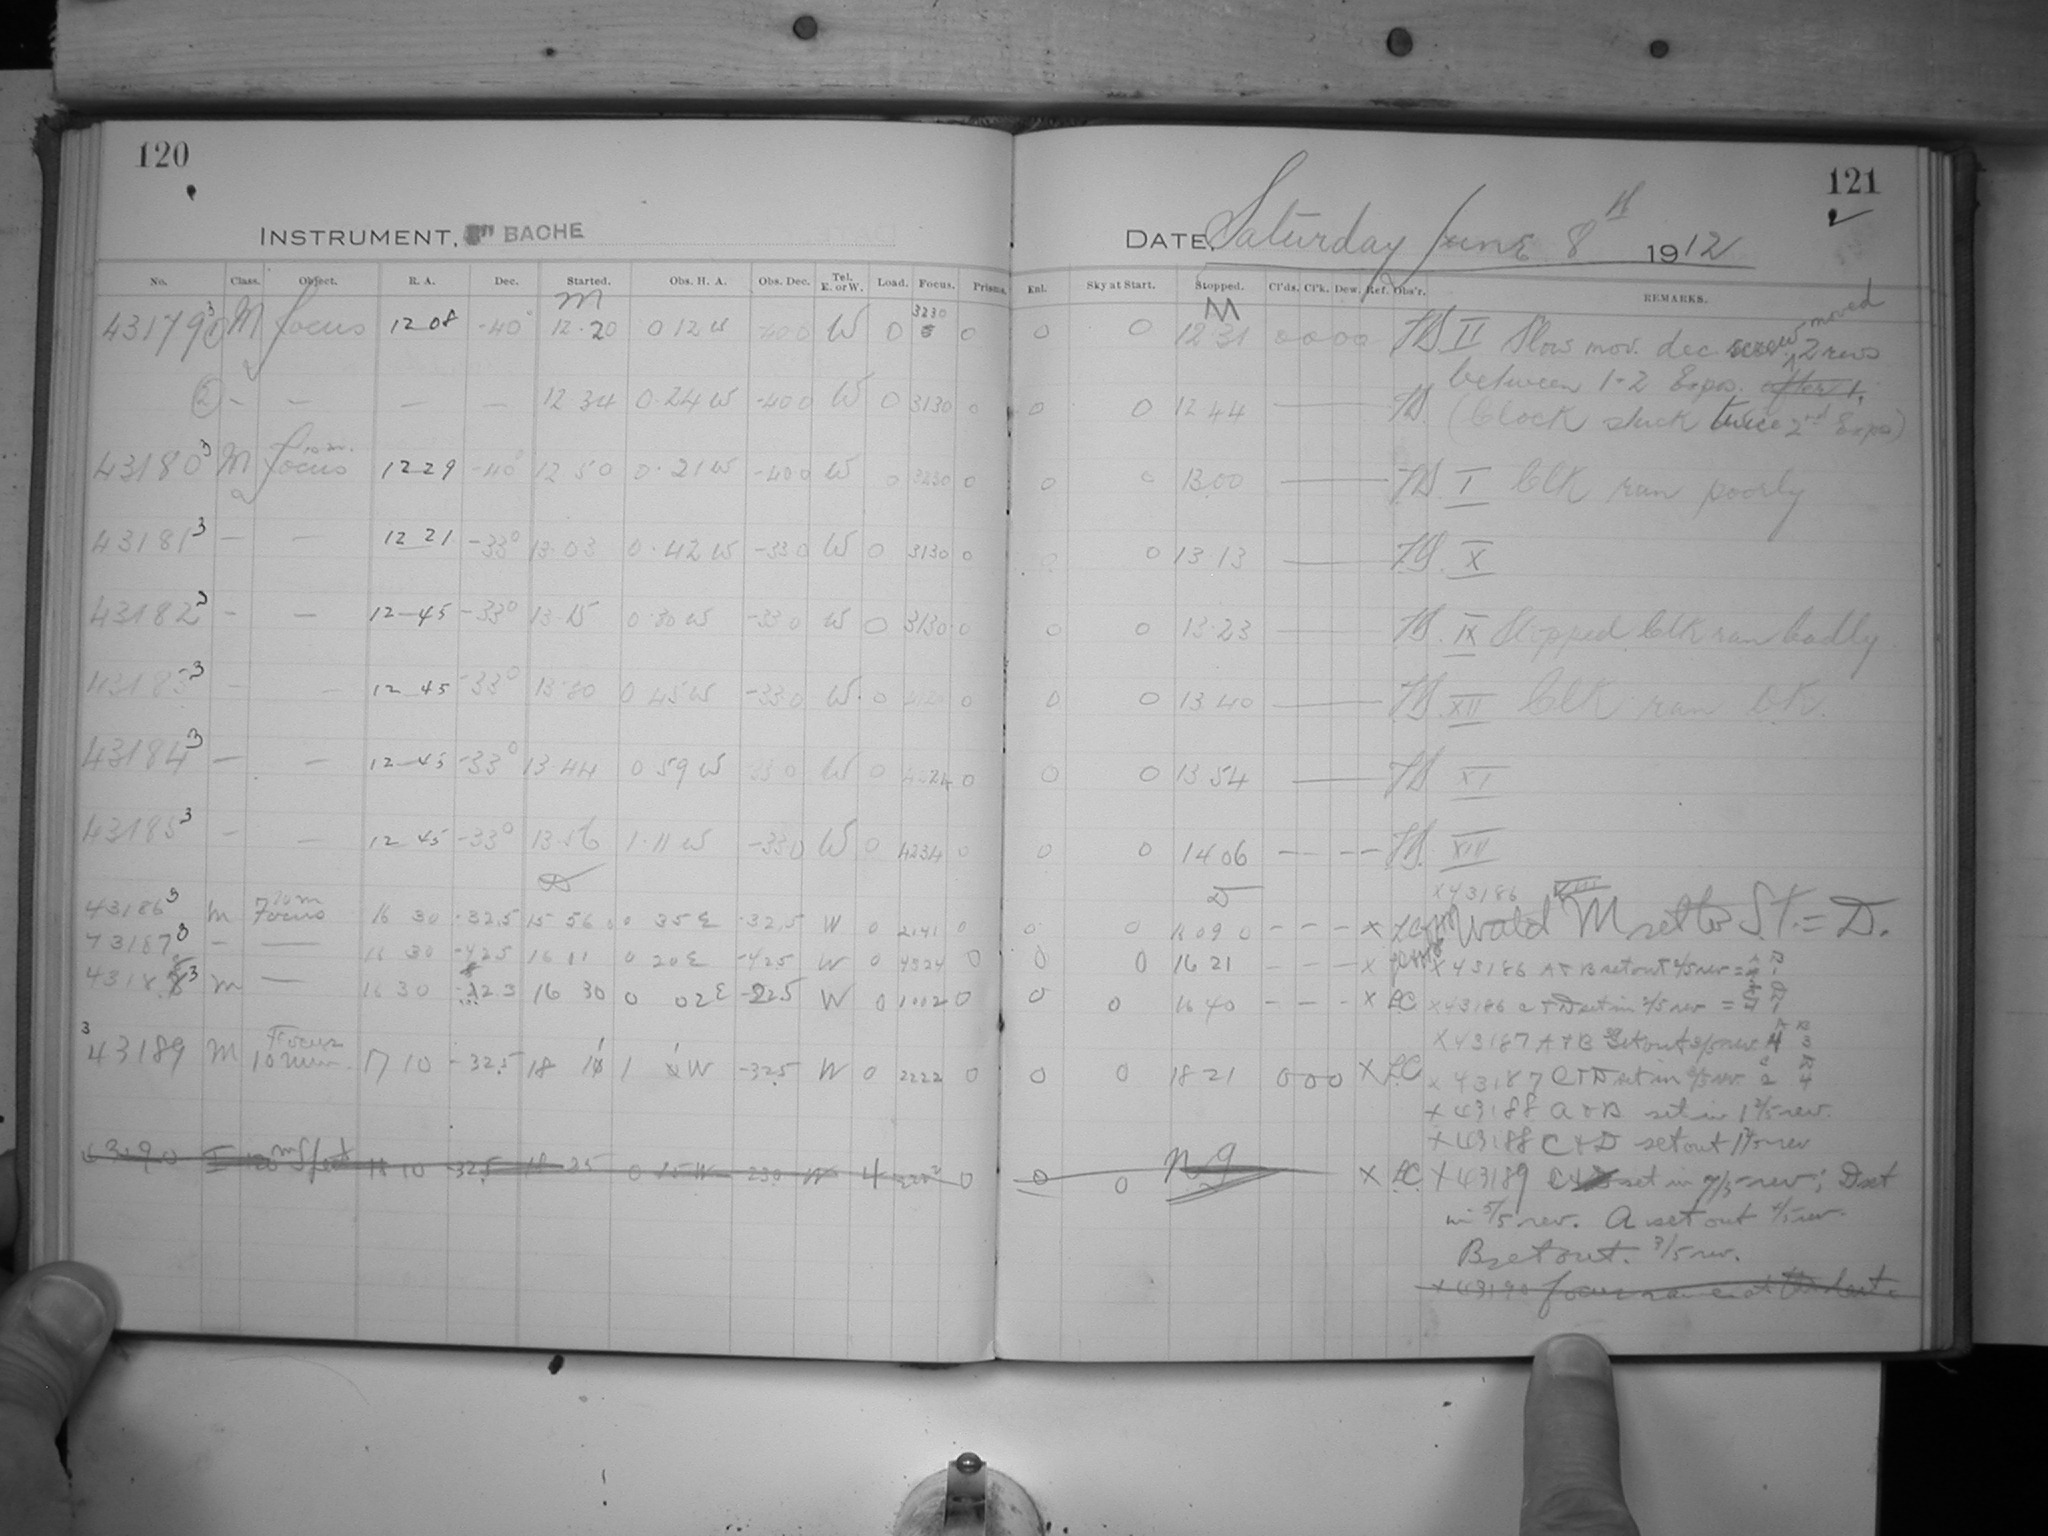 120
INSTRUMENT, 8" BACHE
No. Class. Object. R. A. Dec. Started. Obs. H. A. Obs. Dec. Tel. E. or W. Load. Focus. Prisms.
M
43179 3 M focus 12 08 -40° 12.20 0 12 W -40 0 W 0 3230 0
② — — — — 12 34 0.24 W -40 0 W 0 3130 0
43180 3 M focus 10 m. 12 29 -40° 12 50 0.21 W -40 0 W 0 3230 0
43181 3 — — 12 21 -33° 13.03 0.42 W -33 0 W 0 3130 0
43182 3 — — 12-45 -33° 13.15 0.30 W -33 0 W 0 3130 0
43183 3 — — 12 45 -33° 13.30 0 45 W -33 0 W 0 0
43184 3 — — 12-45 -33° 13 44 0 59 W -33 0 W 0 4324 0
43185 3 — — 12 45 -33° 13.56 1.11 W -33 0 W 0 4234 0
D
43186 3 M Focus 10m 16 30 -32.5 15 56 0 0 35 E -32.5 W 0 2141 0
43187 3 — — 16 30 -42.5 16 11 0 20 E -42.5 W 0 4324 0
43188 3 M — 16 30 16 30 0 02 E -22.5 W 0 1002 0
3 43189 M Focus 10 min. 17 10 -32.5 18 11 1 1 W -32.5 W 0 2222 0
43190 I 18 10 -32.5 18 25 0 15 W W 4 0
121
DATE, Saturday June 8th 1912
Enl. Sky at Start. Stopped. Cl'ds. Cl'k. Dew. Ref. Obs'r. REMARKS.
M
0 0 12 31 0 0 0 0 II Slow mov. dec. screw moved 2 revs
between 1-2 Expos. after 1.
0 0 12 44 — (Clock stuck twice 2nd Expos)
0 0 13.00 — I Clk ran poorly
0 0 13.13 — X
0 0 13.23 — IX Stopped Clk ran badly
0 0 13 40 — XII Clk ran O.K.
0 0 13 54 — XI
0 0 14 06 — — — — XIII
D
x43186 VIII
0 0 16 09 0 — — — x LC Wald M set to S.t. = D.
0 0 16 21 — — — x x 43186 A + B set out 2/5 rev =
0 0 16 40 — — — x LC x43186 C + D set in 2/5 rev =
x 43187 A + B set out 3/5 rev
0 0 18 21 0 0 0 x LC x 43187 C + D set in
x 43188 A + B set in 1 2/5 rev.
x 43188 C + D set out 1 2/5 rev
0 0 n g x LC x 43189 C set in rev; D set
in 5/5 rev. A set out rev.
B set out. 3/5 rev.
x 43190 focus